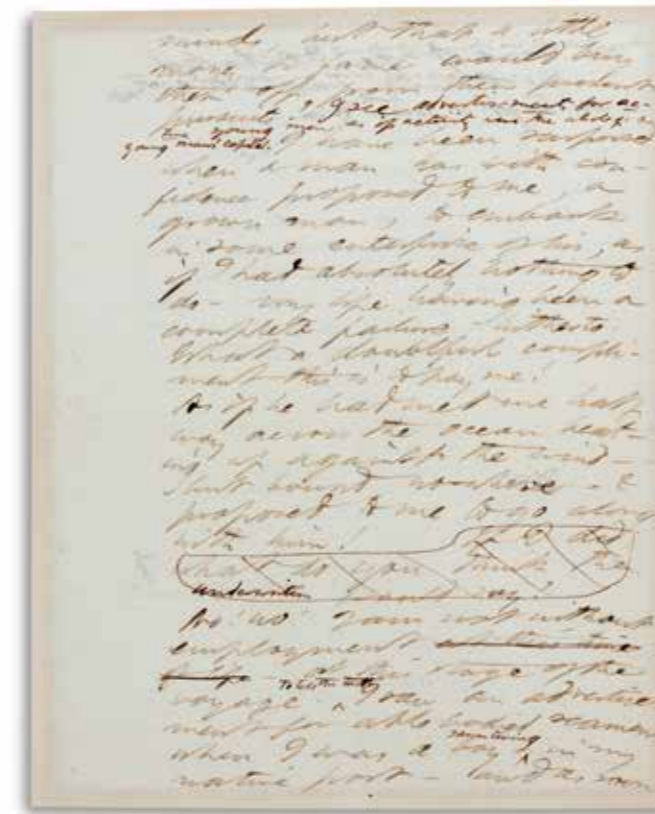 minds, but that a little
more or fame would buy
them off from their present
pursuit. I see advertisements for ac-
tive young men, as if activity were the whole of a
young man's capital. I have been surprised
when a man has with con-
fidence proposed to me, a
grown man, to embark
in some enterprise of his, as
if I had absolutely nothing to
do – my life having been a
complete failure hitherto.
What a doubtful compli-
ment this is to pay me!
As if he had met me half
way across the ocean beat-
ing up against the wind –
but bound nowhere – &
proposed to me to go along
with him! If I did
what do you think the
underwriters would say?
No no! I am not without
employment at this time
stage of the
voyage – To tell the truth I saw an advertise
ment for able bodied seamen
when I was a boy, sauntering in my
native port – and as soon